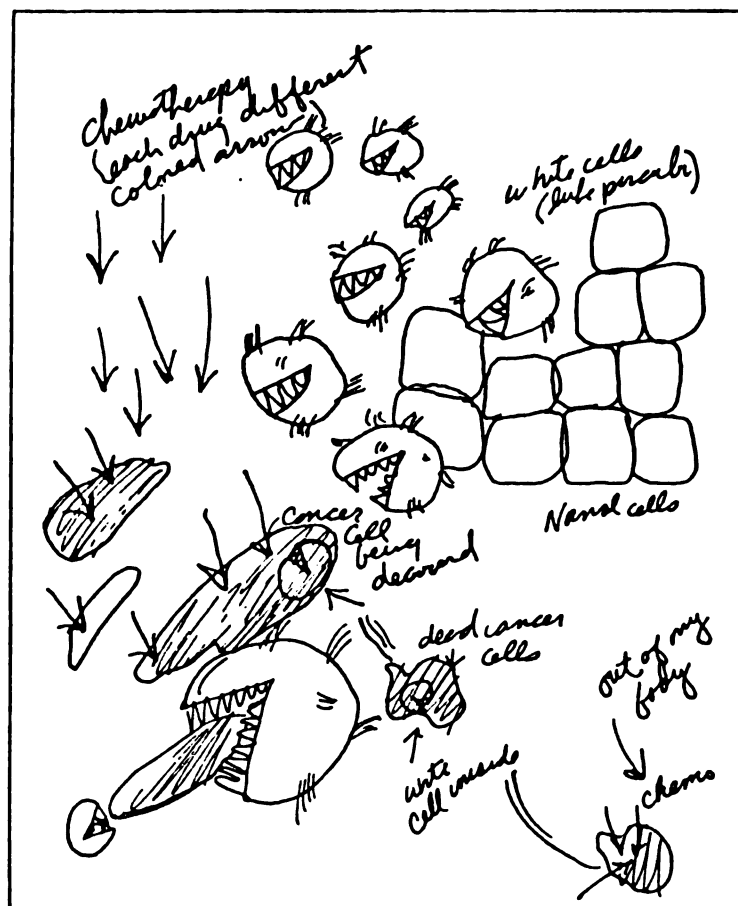 chemotherapy
(each drug different
colored arrow)
white cells
(like piranha)
Normal cells
cancer
cell
being
devoured
dead cancer
cells
white
cell inside
out of my
body
chemo